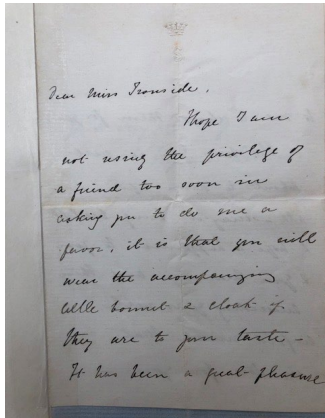 Dear Miss Ironside,
I hope I am
not using the privilege of
a friend too soon in
asking you to do me a
favor, it is that you will
wear the accompanying
little bonnet & cloak if
they are to your taste –
It has been a great pleasure